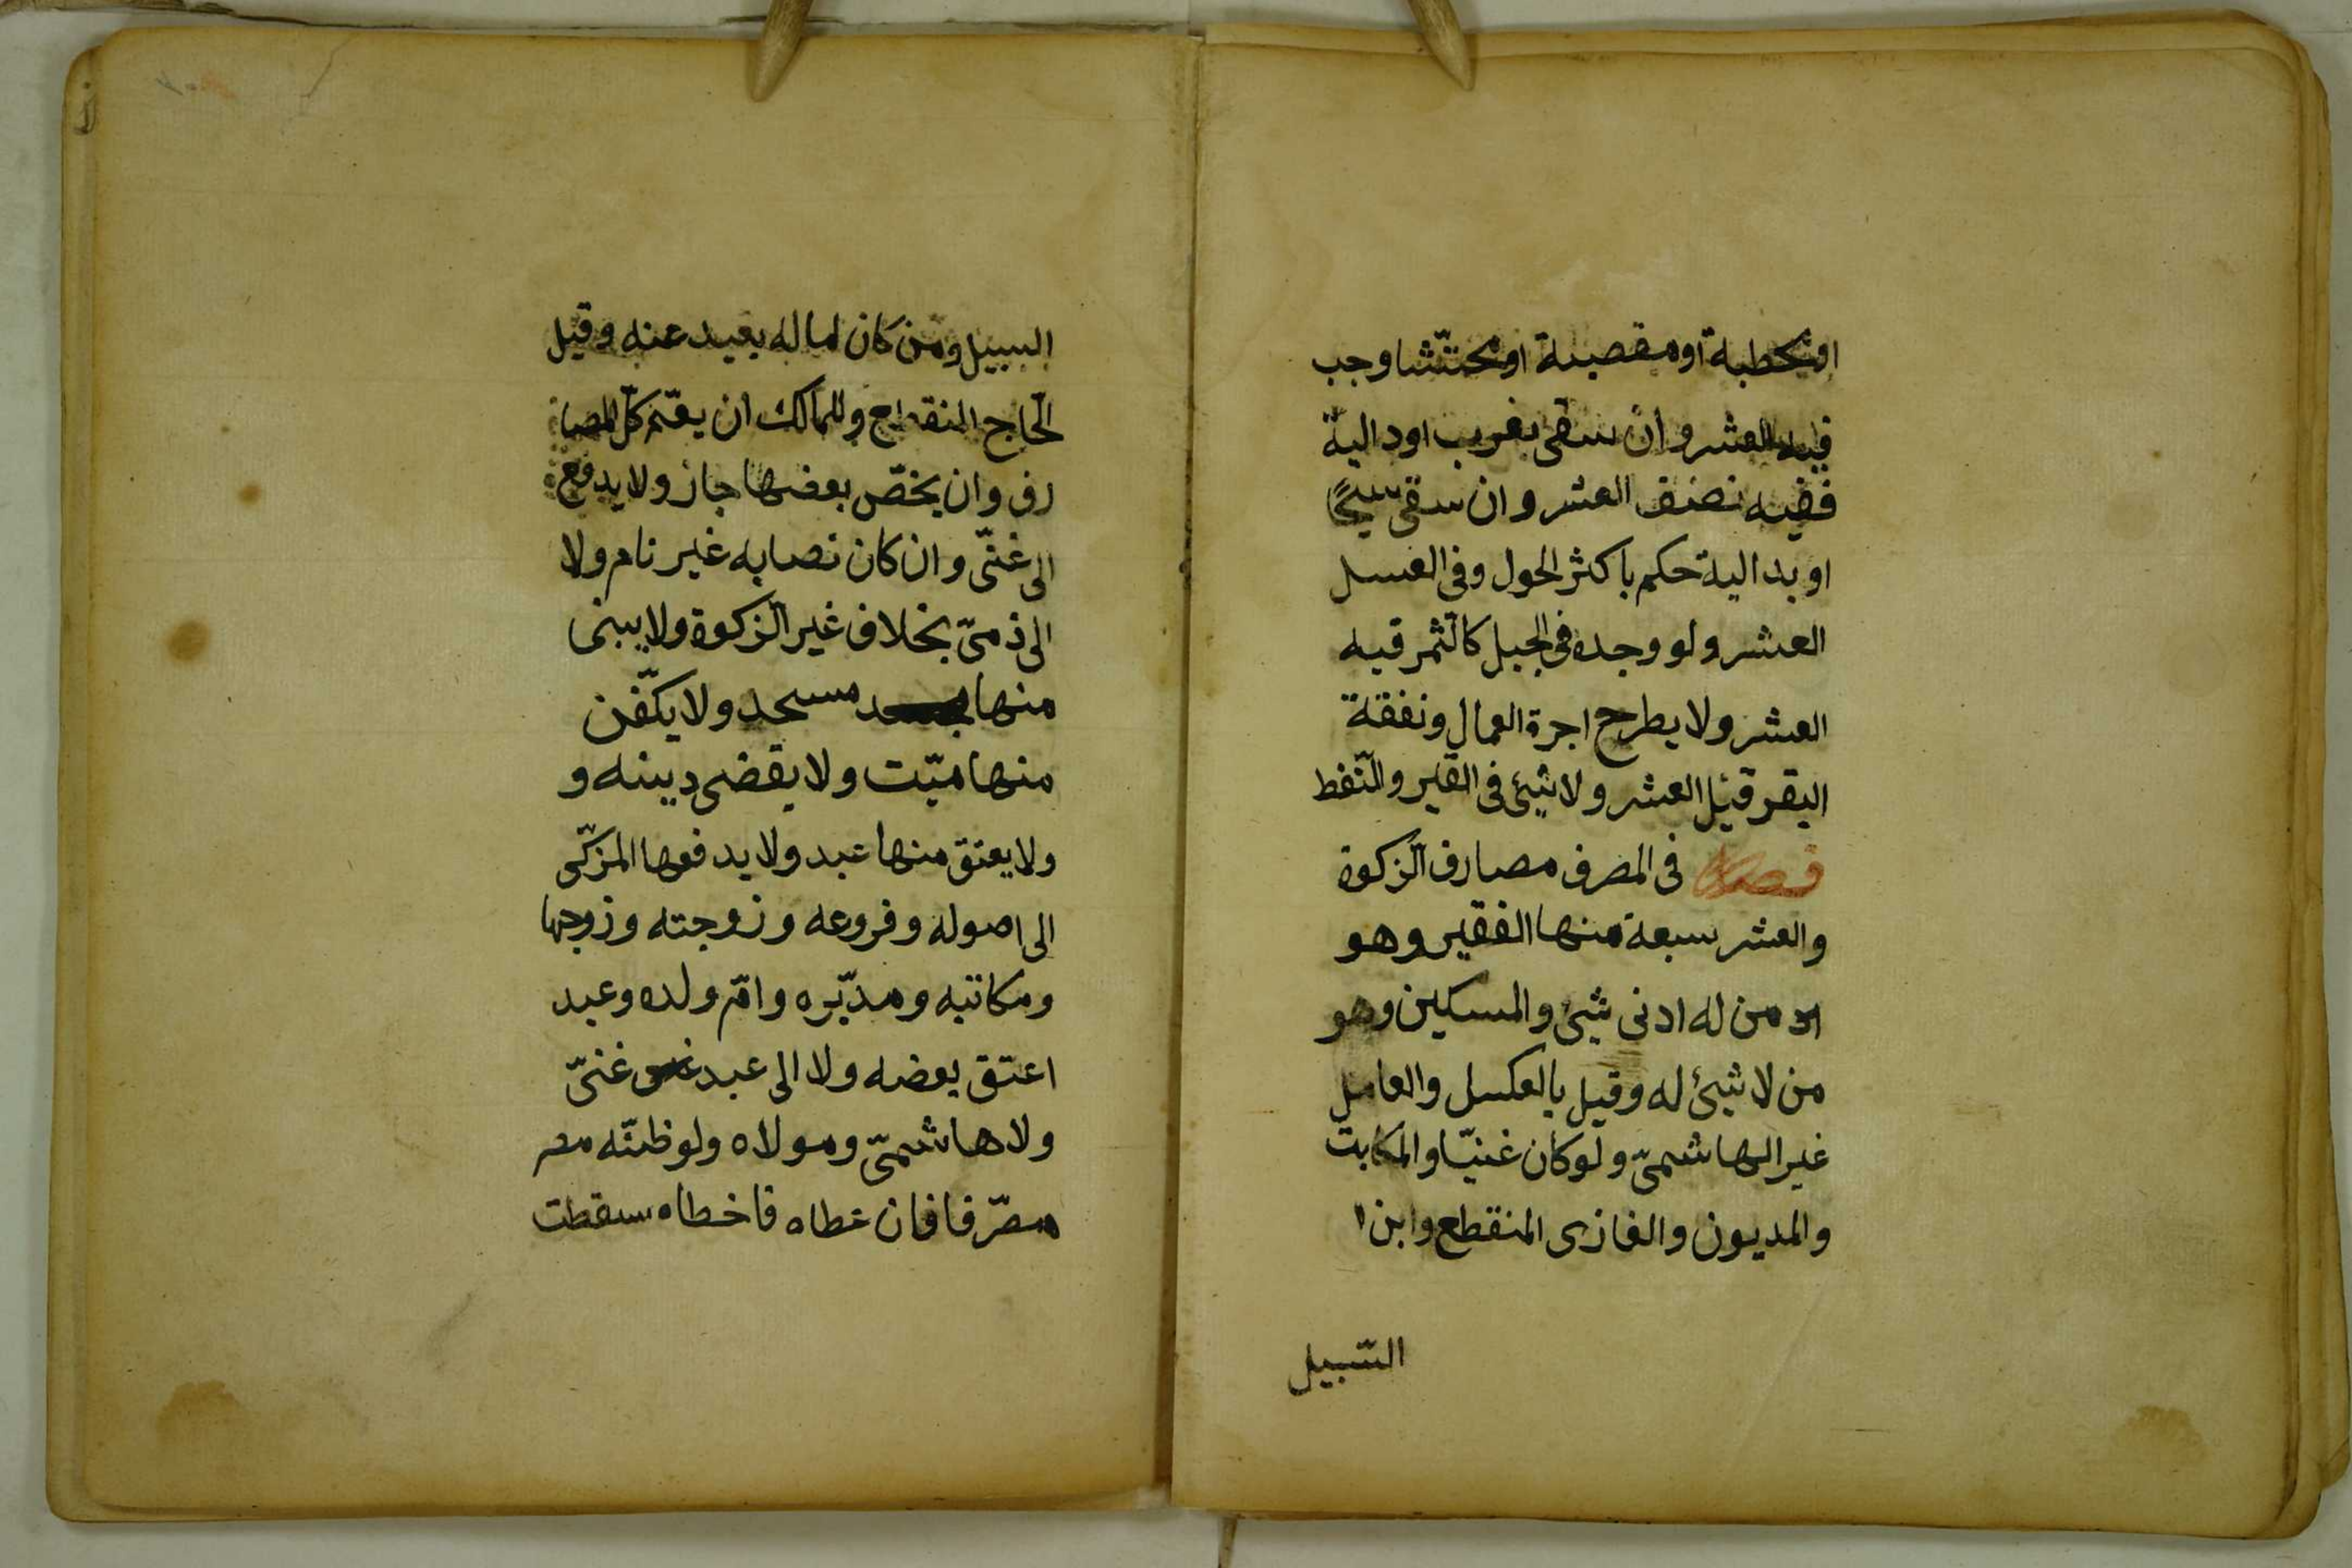 او محطبة او مقصبة او محتشّا وجب
فيه العشر وان سقى بغرب او دالية
ففيه نصف العشر وان سقى سيحًا
او بدالية حكم باكثر الحول وفى العسل
العشر ولو وجده فى الجبل كالثّمر فيه
العشر ولا يطرح اجرة العمال ونفقة
البقر قبل العشر ولا شيئ فى القير والنّفط
فصل فى المصرف مصارف الزّكوة
والعشر سبعة منها الفقير وهو
من له ادنى شيئ والمسكين وهو
من لا شيئ له وقيل بالعكس والعامل
غير الهاشمىّ ولو كان غنيّا والمكابت
والمديون والغازى المنقطع وابن ا
السّبيل
السبيل ومن كان لماله بعيد عنه وقيل
الحّاج المنقطع وللمالك ان يعمّم كلّ المصا
رف وان يخصّ بعضها جاز ولا يدفع
الى غنىّ وان كان نصابه غير نام ولا
الى ذمىّ بخلاف غير الزّكوة ولا يبنى
منها مسجد ولا يكفّن
منها ميّت ولا يقضى دينه و
ولا يعتق منها عبد ولا يدفعها المزكّى
الى اصوله وفروعه وزوجته وزوجها
ومكاتبه ومدبّره وامّ ولده وعبد
اعتق بعضه ولا الى عبد غنىّ
ولا هاشمىّ ومولاه ولو ظنّه مصر
مصرّفا فان عطاه فاخطاه سقطت